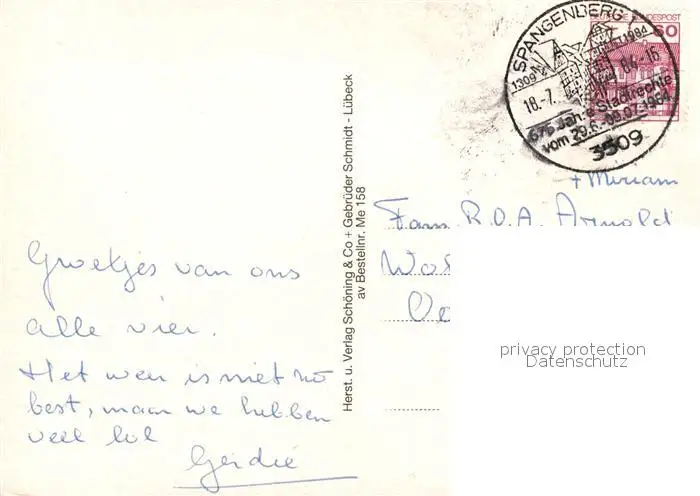 Groetjes van ons
alle vier.
Het weer is niet zo
best, maar we hebben
veel lol
Gerdie
Herst. u. Verlag Schöning & Co + Gebrüder Schmidt - Lübeck
av Bestellnr. Me 158
SPANGENBERG
1309 1984
18.-7. 84-16
675 Jahre Stadtrechte
vom 29.6.-09.07.1984
3509
DEUTSCHE BUNDESPOST
60
+ Miriam
Fam. R.O.A. Arnold
privacy protection
Datenschutz